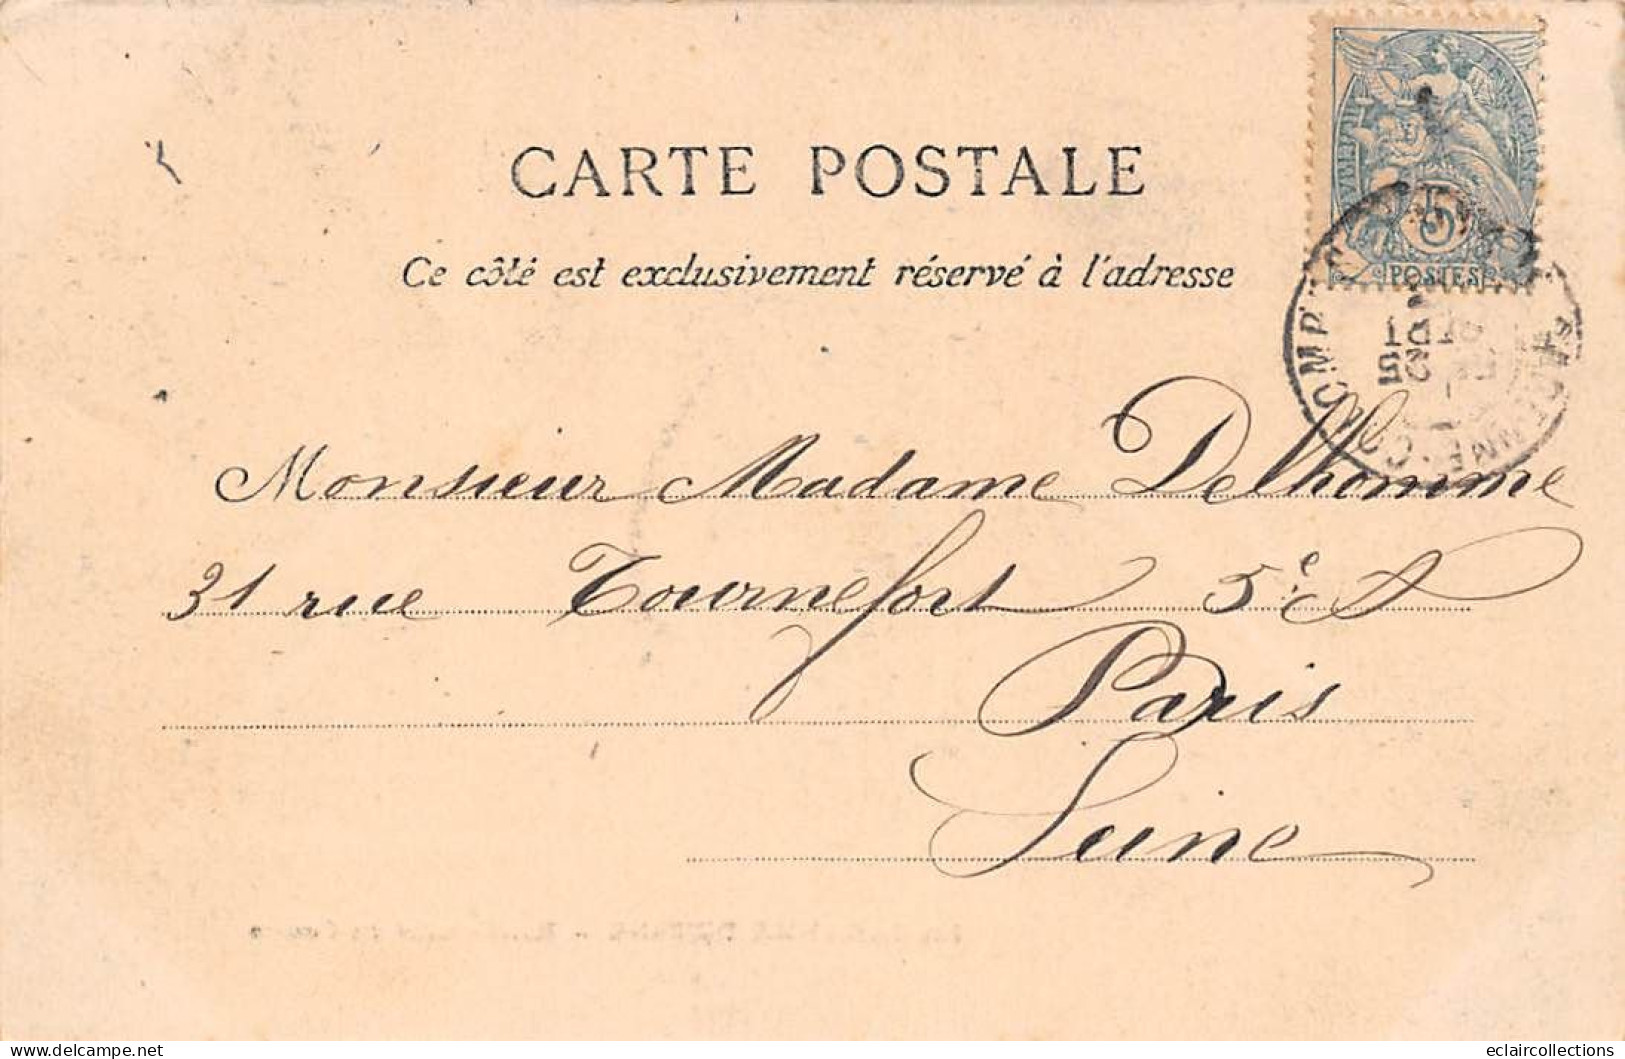 CARTE POSTALE
Ce côté est exclusivement réservé à l'adresse
RÉPUBLIQUE FRANÇAISE
5
POSTES
Monsieur Madame Delhomme
31 rue Tournefort 5e A
Paris
Seine
delcampe.net
eclaircollections